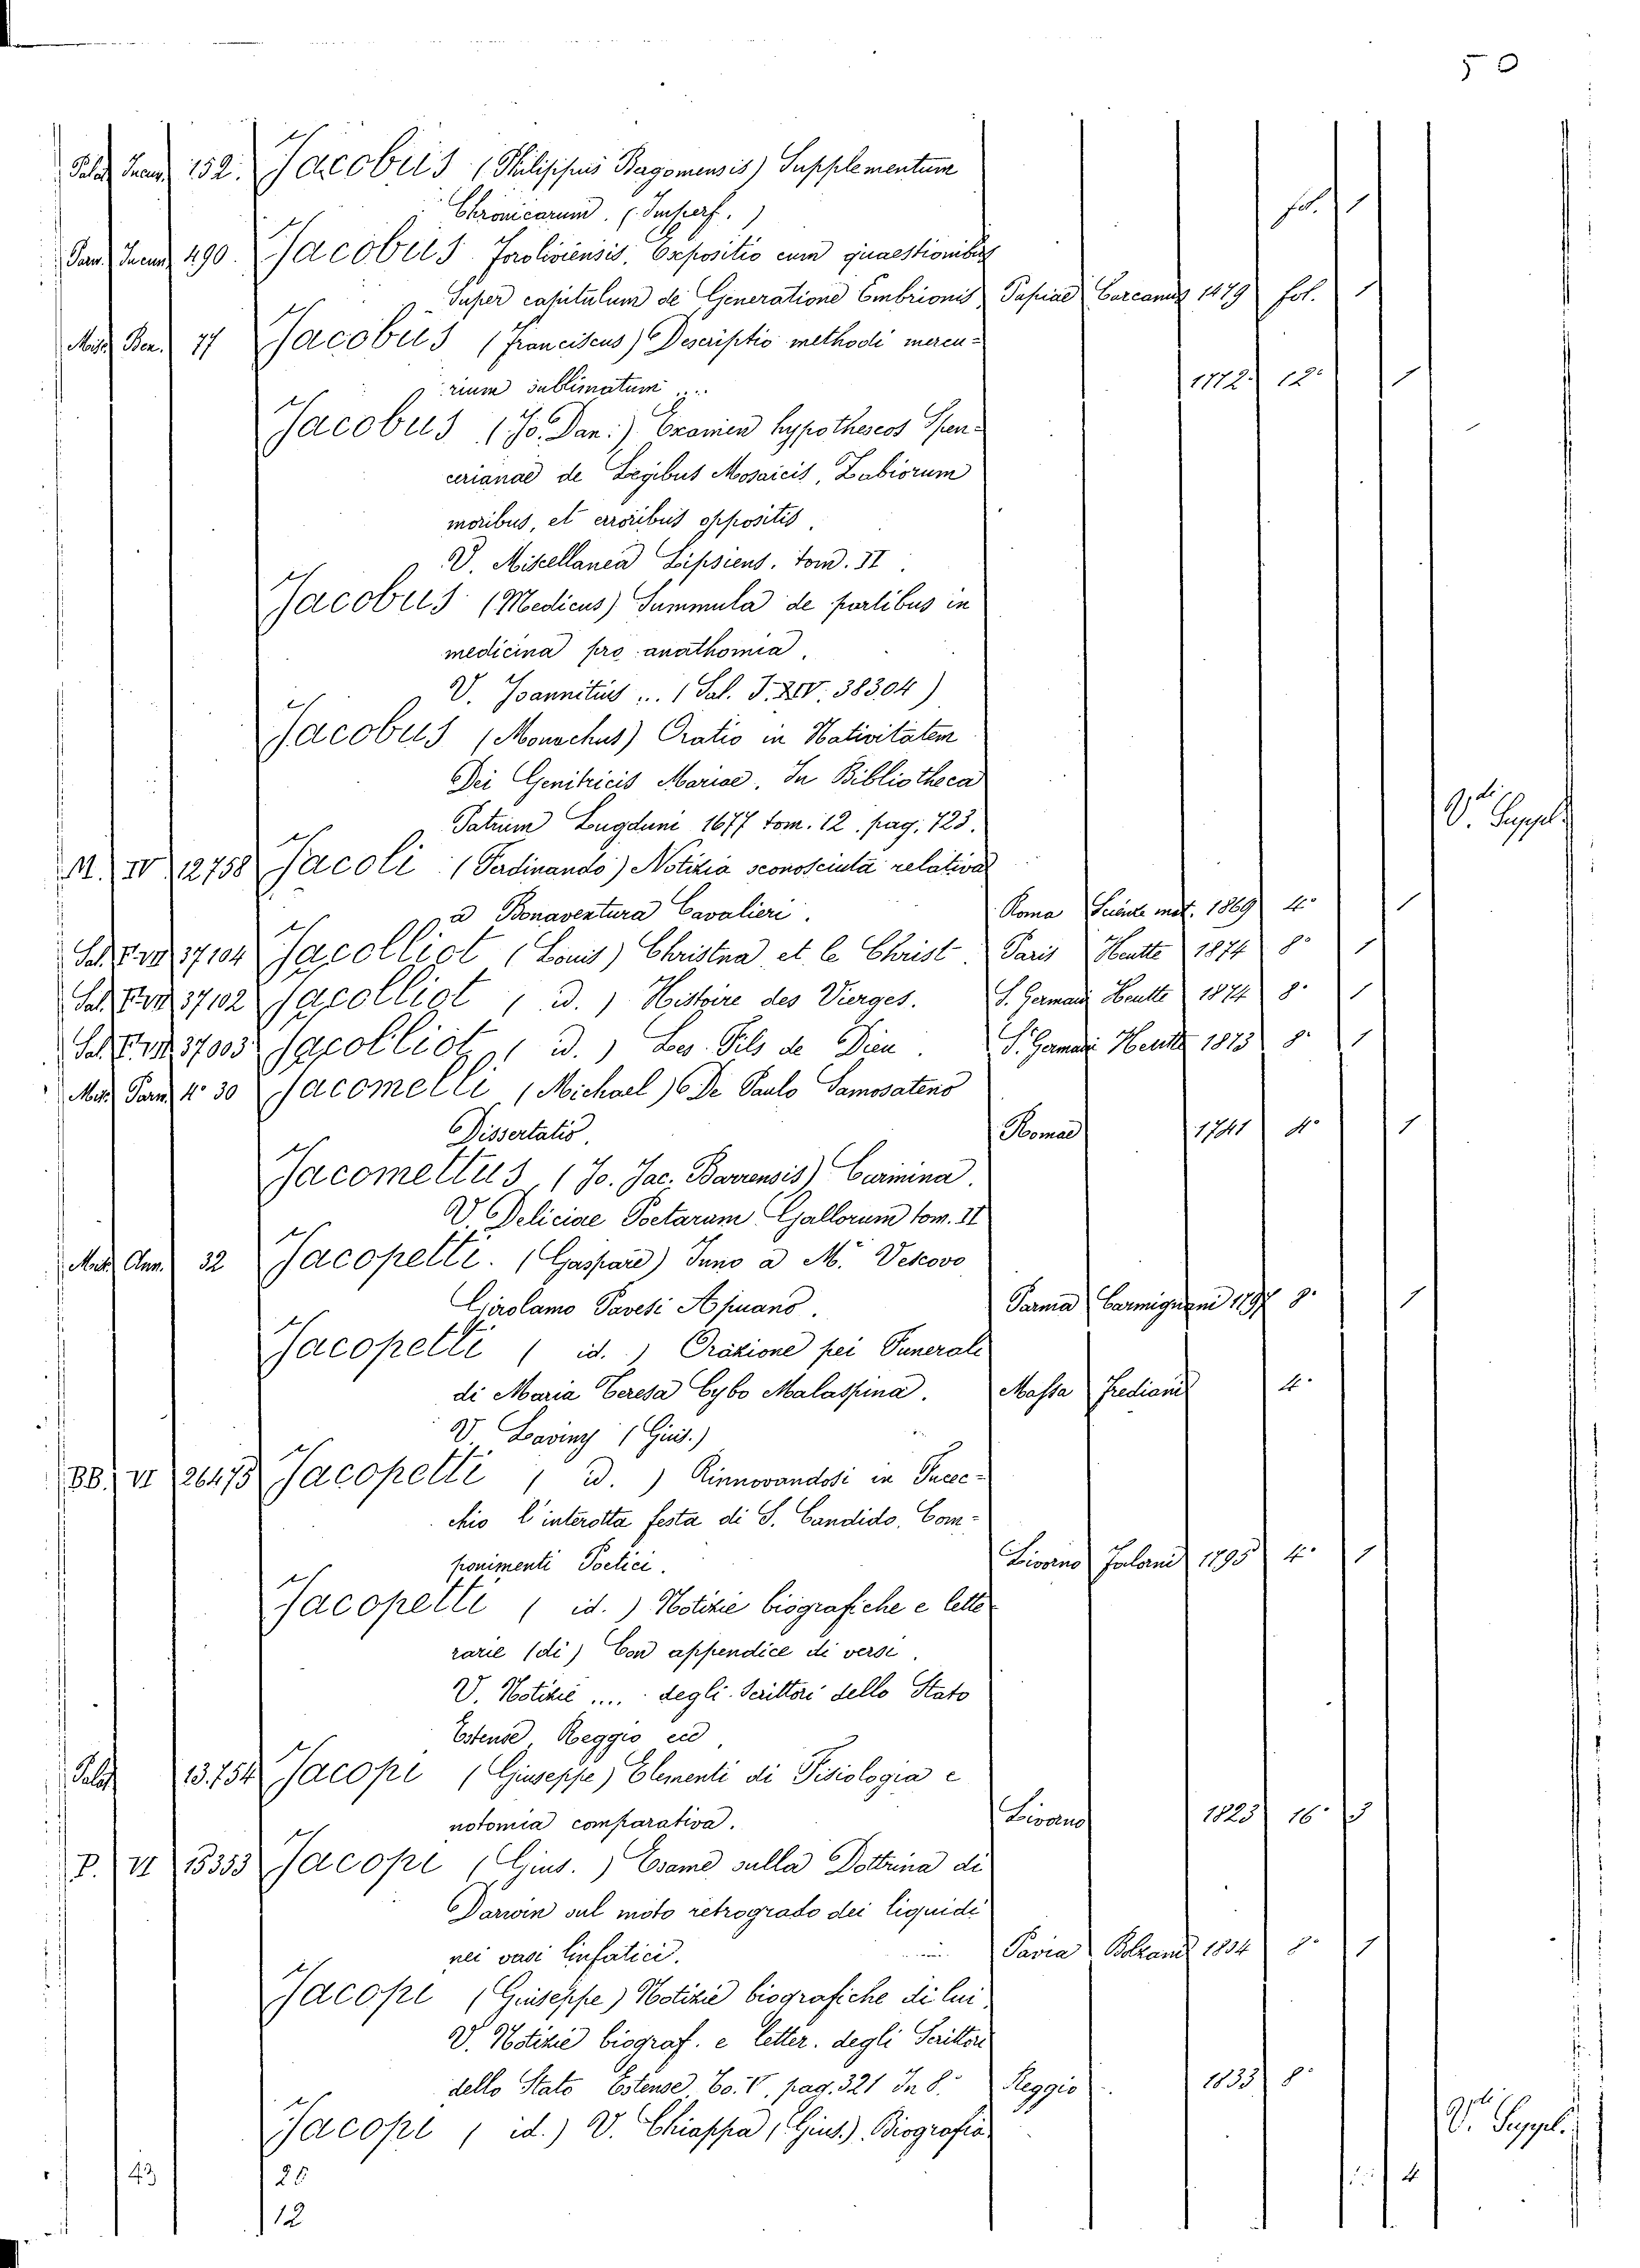 50
Palat. Incun. 152. Jacobus (Philippus Bergomensis) Supplementum
Chronicarum. (Imperf.) fol. 1
Parm. Incun. 490. Jacobus Foroliviensis. Expositio cum quaestionibus
Super capitulum de Generatione Embrionis Papiae Carcanus 1479 fol. 1
Misc. Ben. 77 Jacobus (Franciscus) Descriptio methodi mercu-
rium sublimatum ... 1772. 12° 1
Jacobus (Jo. Dan.) Examen hypotheseos Spen-
cerianae de Legibus Mosaicis, Zabiorum
moribus, et erroribus oppositis.
V. Miscellanea Lipsiens. tom. II.
Jacobus (Medicus) Summula de partibus in
medicina pro anathomia.
V. Joannitius ... (Sal. J. XIV. 38304)
Jacobus (Monachus) Oratio in Nativitatem
Dei Genitricis Mariae. In Bibliotheca
Patrum Lugduni 1677 tom. 12. pag. 723. V. Suppl.
M. IV 12758 Jacoli (Ferdinando) Notizia sconosciuta relativa
a Bonaventura Cavalieri. Roma Scienze mat. 1869 4° 1
Sal. 37104 Jacolliot (Louis) Christna et le Christ. Paris 1874 8° 1
Sal. 37102 Jacolliot (id.) Histoire des Vierges. S. Germain 1874 8° 1
Sal. 37003 Jacolliot (id.) Les Fils de Dieu. S. Germain 1873 8° 1
Misc. Parm. 4° 30 Jacomelli (Michael) De Paulo Samosateno
Dissertatio. Romae 1741 4° 1
Jacomettus (Jo. Jac. Barrensis) Carmina.
V. Deliciae Poetarum Gallorum tom. II
Misc. Ann. 32 Jacopetti. (Gaspare) Inno a M.r Vescovo
Girolamo Pavesi Apuano. Parma Carmignani 1797 8° 1
Jacopetti (id.) Orazione pei Funerali
di Maria Teresa Cybo Malaspina. Massa Frediani 4°
V. Laviny (Gius.)
BB. VI 26475 Jacopetti (id.) Rinnovandosi in Fucec-
chio l'interotta festa di S. Candido, Com-
ponimenti Poetici. Livorno Falorni 1795 4° 1
Jacopetti (id.) Notizie biografiche e lette-
rarie (di) Con appendice di versi.
V. Notizie .... degli Scrittori dello Stato
Estense, Reggio ecc.
Palat. 13.754 Jacopi (Giuseppe) Elementi di Fisiologia e
notomia comparativa. Livorno 1823 16° 3
P. VI 15353 Jacopi (Gius.) Esame sulla Dottrina di
Darwin sul moto retrogrado dei liquidi
nei vasi linfatici. Pavia Bolzani 1804 8° 1
Jacopi (Giuseppe) Notizie biografiche di lui.
V. Notizie biograf. e letter. degli Scrittori
dello Stato Estense To. V. pag. 321 In 8.° Reggio 1833 8°
Jacopi (id.) V. Chiappa (Gius.) Biografia. V. Suppl.
43 28 4
12